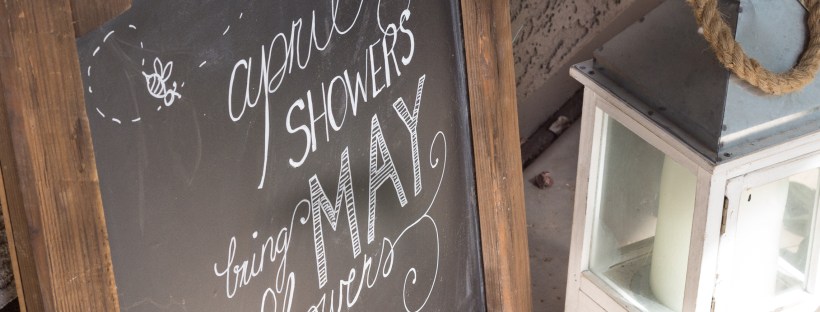 april
SHOWERS
bring MAY
flowers